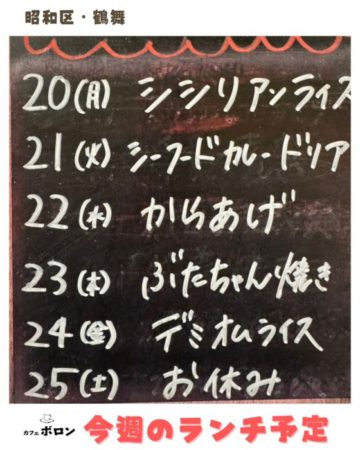 昭和区・鶴舞
20(月) シシリアンライス
21(火) シーフードカレードリア
22(水) からあげ
23(木) ぶたちゃん焼き
24(金) デミオムライス
25(土) お休み
カフェ ボロン 今週のランチ予定